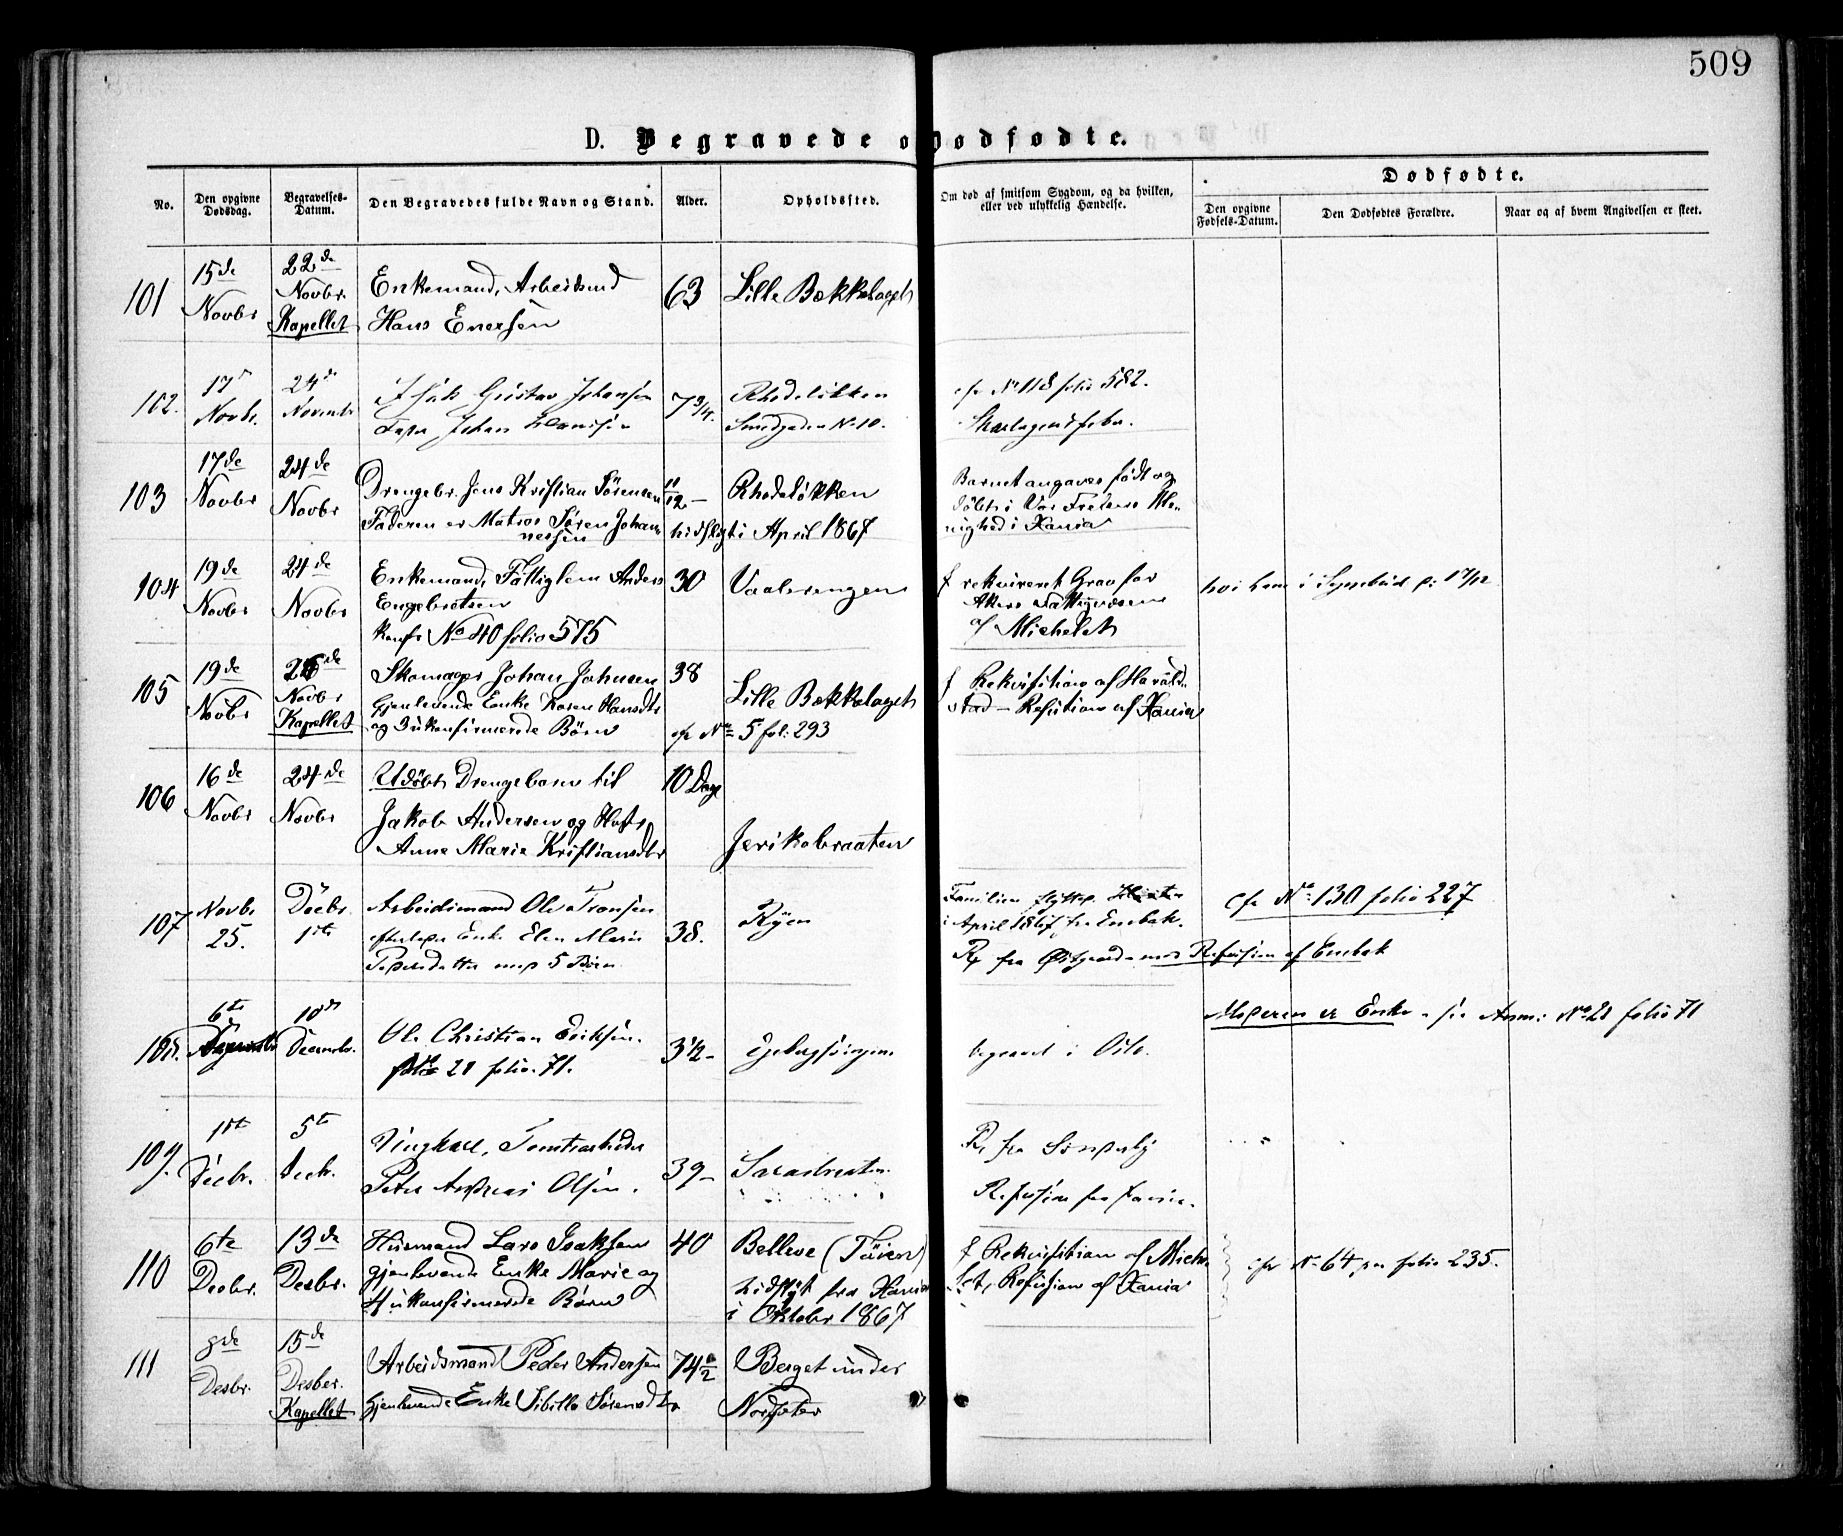 509
D. Begravede o Dødfødte.
No.
Den opgivne Dødsdag.
Begravelses-Datum.
Den Begravedes fulde Navn og Stand.
Alder.
Opholdssted.
Om død af smitsom Sygdom, og da hvilken, eller ved ulykkelig Hændelse.
Dødfødte.
Den opgivne Fødsels-Datum.
Den Dødfødtes Forældre.
Naar og af hvem Angivelsen er skeet.
101
15de Novbr
22de Novbr. Kapellet
Enkemand, Arbeidsmd
Hans Enersen
63
Lille Bækkelaget
102.
17 Novbr.
24de Novembr
Gustav Johansen
Johan
7 3/4.
Rhodeløkken
Smedgaden No 10.
cfr No 118 folio 582.
Skarlagensfeber.
103
17de Novbr
24de Novbr
Drengebr. Jens Kristian Sørensen
Faderen er Matros Søren Johannessen
11/12
Rhodeløkken
hidflyt i April 1867
Barnet angaves født og
døbt i Vor Frelsers Menighed i Xania
104
19de Novbr
24de Novbr
Enkemand, Fattiglem Anders
Engebretsen
konfr No 40 folio 575
30
Vaalerengen
f rekvireret Grav for
Akers Fattigvæsen
af Michelet
105
19de Novbr
26de Novbr Kapellet
Skomager Johan Johnsen
Gjenlevende Enke Karen Hansdtr
og 3 ukonfirmerede Børn
38
Lille Bækkelaget
cfr No 5 fol: 293
f Rekvisition af Haraldstad – Refusion af Xania
106
16de Novbr
24de Novbr
Udøbt Drengebarn til
Jakob Andersen og Hustr
Anne Marie Kristiansdtr
10 Dage
Jerikobraaten
107
Novbr 25.
Decbr. 1ste
Arbeidsmand Ole Fransen
Enke Elen Marie
Pedersdatter 5 Børn
38.
Ryen
Familien
i April fra Enebak.
R. fra Østgaard Refusion af Enebak
cfr No 130 folio 227
108.
6te
10de Decembr.
Ole Christian Eriksen.
21 folio. 71.
3½
begravet i Oslo.
Moderen er Enke – se Anm: No 21 folio 71
109.
1ste Decbr.
5te Decbr.
Ungkarl, Tomtearbeider
Peter Andreas Olsen.
39
Sarabraaten.
R. fra
Refusion fra Xania.
110
6te Decbr.
13de Desbr.
Husmand Lars Isaksen
gjenlevende Enke Marie og
4 ukonfirmerede Børn
40
Belleve (Tøien)
hidflyt fra Xania
i Oktober 1867
f Rekvisition af Michelet, Refusion af Xania
cfr No 64 folio 235.
111
8de Desbr.
15de Desber. Kapellet
Arbeidsmand Peder Andersen
Gjenlevende Enke Sibille Sørensdtr
74½
Berget under
Nordseter